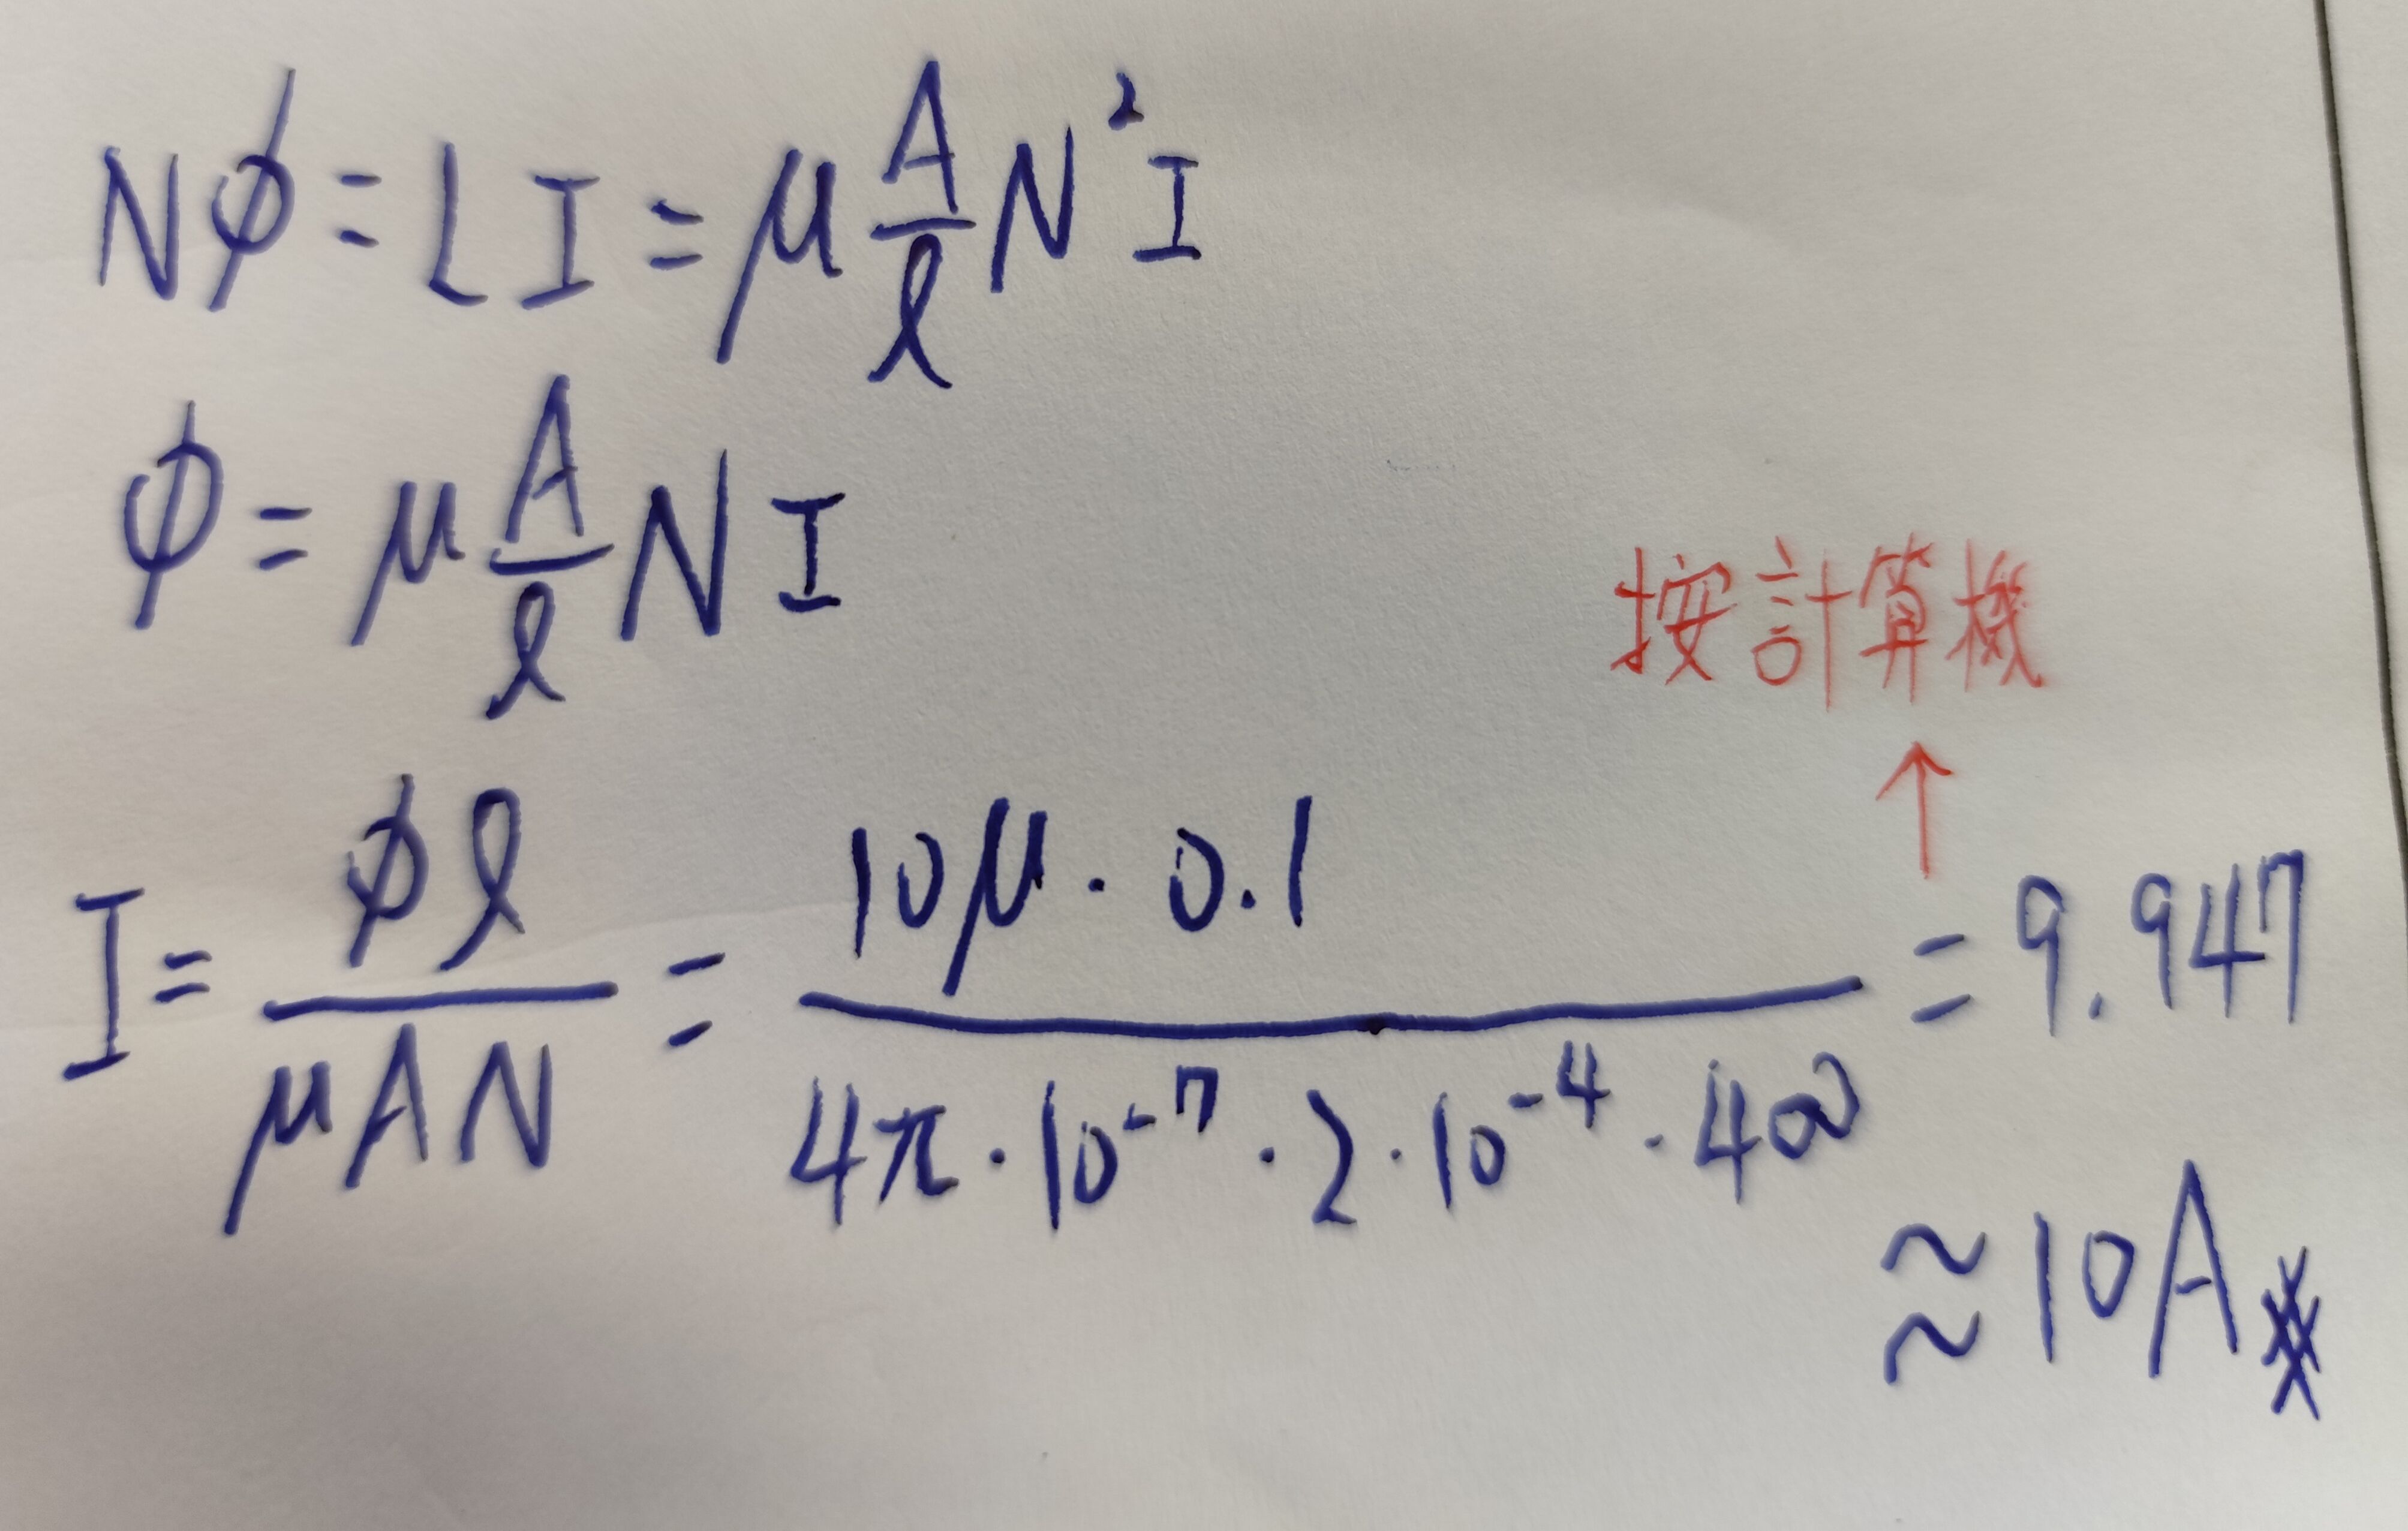 Nϕ = LI = μ A/ℓ N² I
ϕ = μ A/ℓ N I
按計算機
↑
I = ϕℓ/μAN = 10μ · 0.1 / 4π · 10⁻⁷ · 2 · 10⁻⁴ · 400 = 9.947
≈ 10A